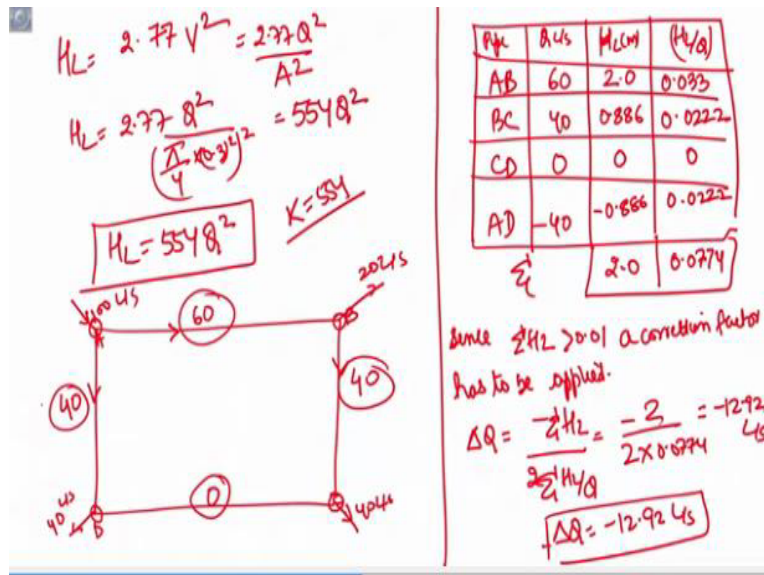 H_L = 2.77 V² = 2.77Q² / A²
H_L = 2.77 Q² / (π/4 × 0.3²)² = 554Q²
H_L = 554Q²
K = 554
100 L/S
60
20 L/S
A
B
40
40
0
40 L/S
D
40 L/S
Pipe Q L/s H_L(m) (H_L/Q)
AB 60 2.0 0.033
BC 40 0.886 0.0222
CD 0 0 0
AD -40 -0.886 0.0222
Σ 2.0 0.0774
Since ΣH_L > 0.01 a correction factor
has to be applied.
ΔQ = -ΣH_L / 2ΣH_L/Q = -2 / 2×0.0774 = -12.92 L/s
ΔQ = -12.92 L/s